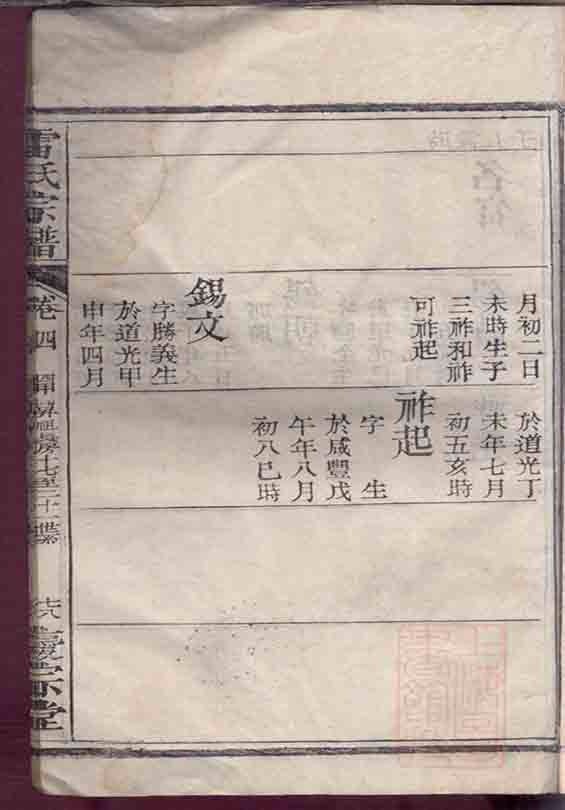 月初二日
未時生子
三祚和祚
可祚起
錫文
字勝義生
於道光甲
申年四月
於道光丁
未年七月
初五亥時
祚起
字 生
於咸豐戊
午年八月
初八巳時
雷氏宗譜
卷四
慶宗堂